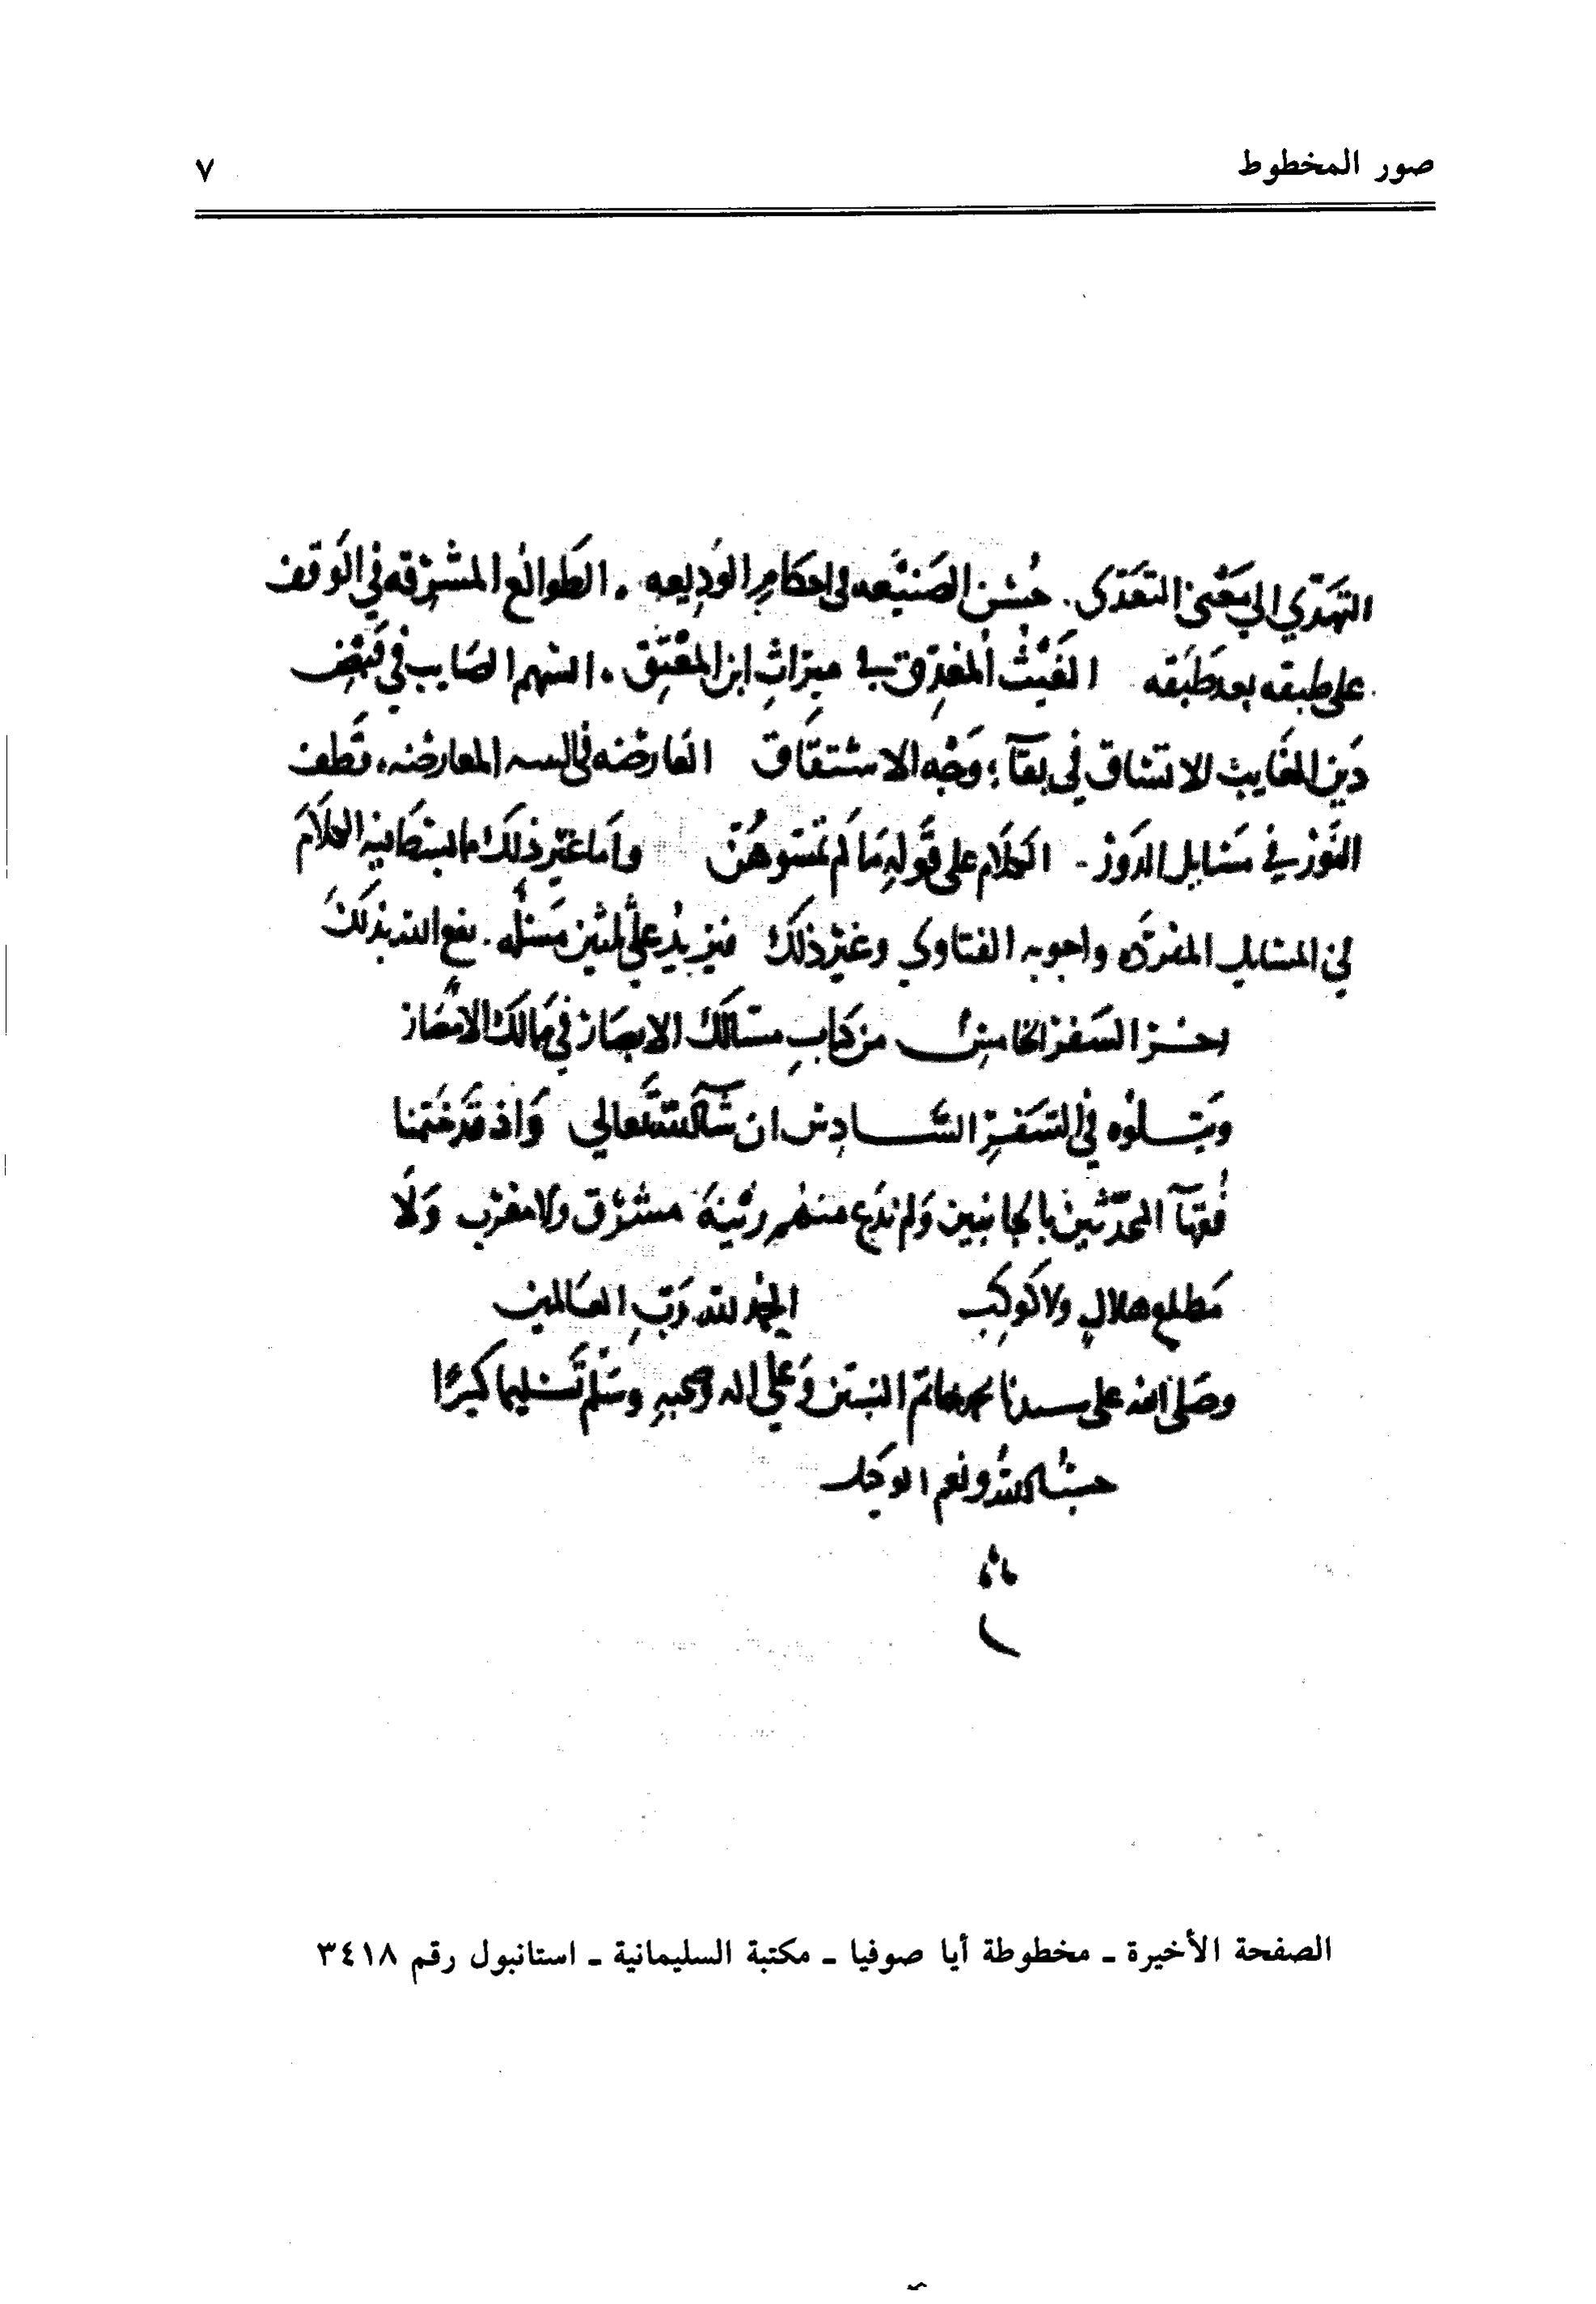 صور المخطوط ٧
التهدّي الى مَعْنى التعَدّى. حُسْن الصَنيْعه فى احكامِ الوَدِيعه . الطوالع المشرقه في الوَقف
على طبقه بعد طبَقه الغَيْثُ المغدق في ميرَاثِ ابن المعْتِق . السهم الصَايب في قبْض
دَين الغَايب وَجْه الاشتقاق العَارضه في المعارضه، قطف
النَّوْر في مسَايل الدَوْر - الكلام على قَولِه مَا لم تمسّوهُنّ وامَا غير ذلك مما الكلامَ
في المسَايل المفردَه واجوبه الفتاوى وغير ذلك فيَزيدُ على مسئله. نفع الله بذلك
اخر السفر الخامس من كتابِ مسَالك الابصَار في ممالك الامصَار
ويَتلُوه في السَفرِ السَّادس ان شآ الله تعالي وَاذ قد خَتمنا
فُقهآ المحدّثين بالجانبين وَلم ندَع منهم مشرق ولا مغرب وَلَا
مَطلع هلالٍ ولا كَوكبِ الحمد لله رَبّ العَالمين
وصَلى الله على سيدنا محمد خاتم النبيّن وَعلى اله وصحبهِ وسَلم تَسليما كثيرًا
حسْبنا الله ونعم الوَكيل
الصفحة الأخيرة ـ مخطوطة أيا صوفيا ـ مكتبة السليمانية ـ استانبول رقم ٣٤١٨